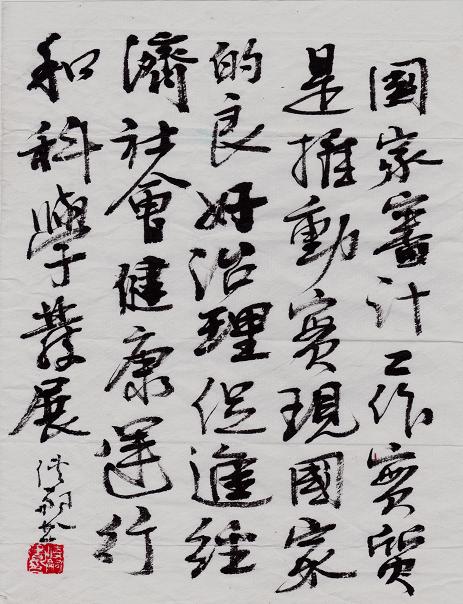 國家審計工作實質
是推動實現國家
的良好治理促進經
濟社會健康運行
和科學發展